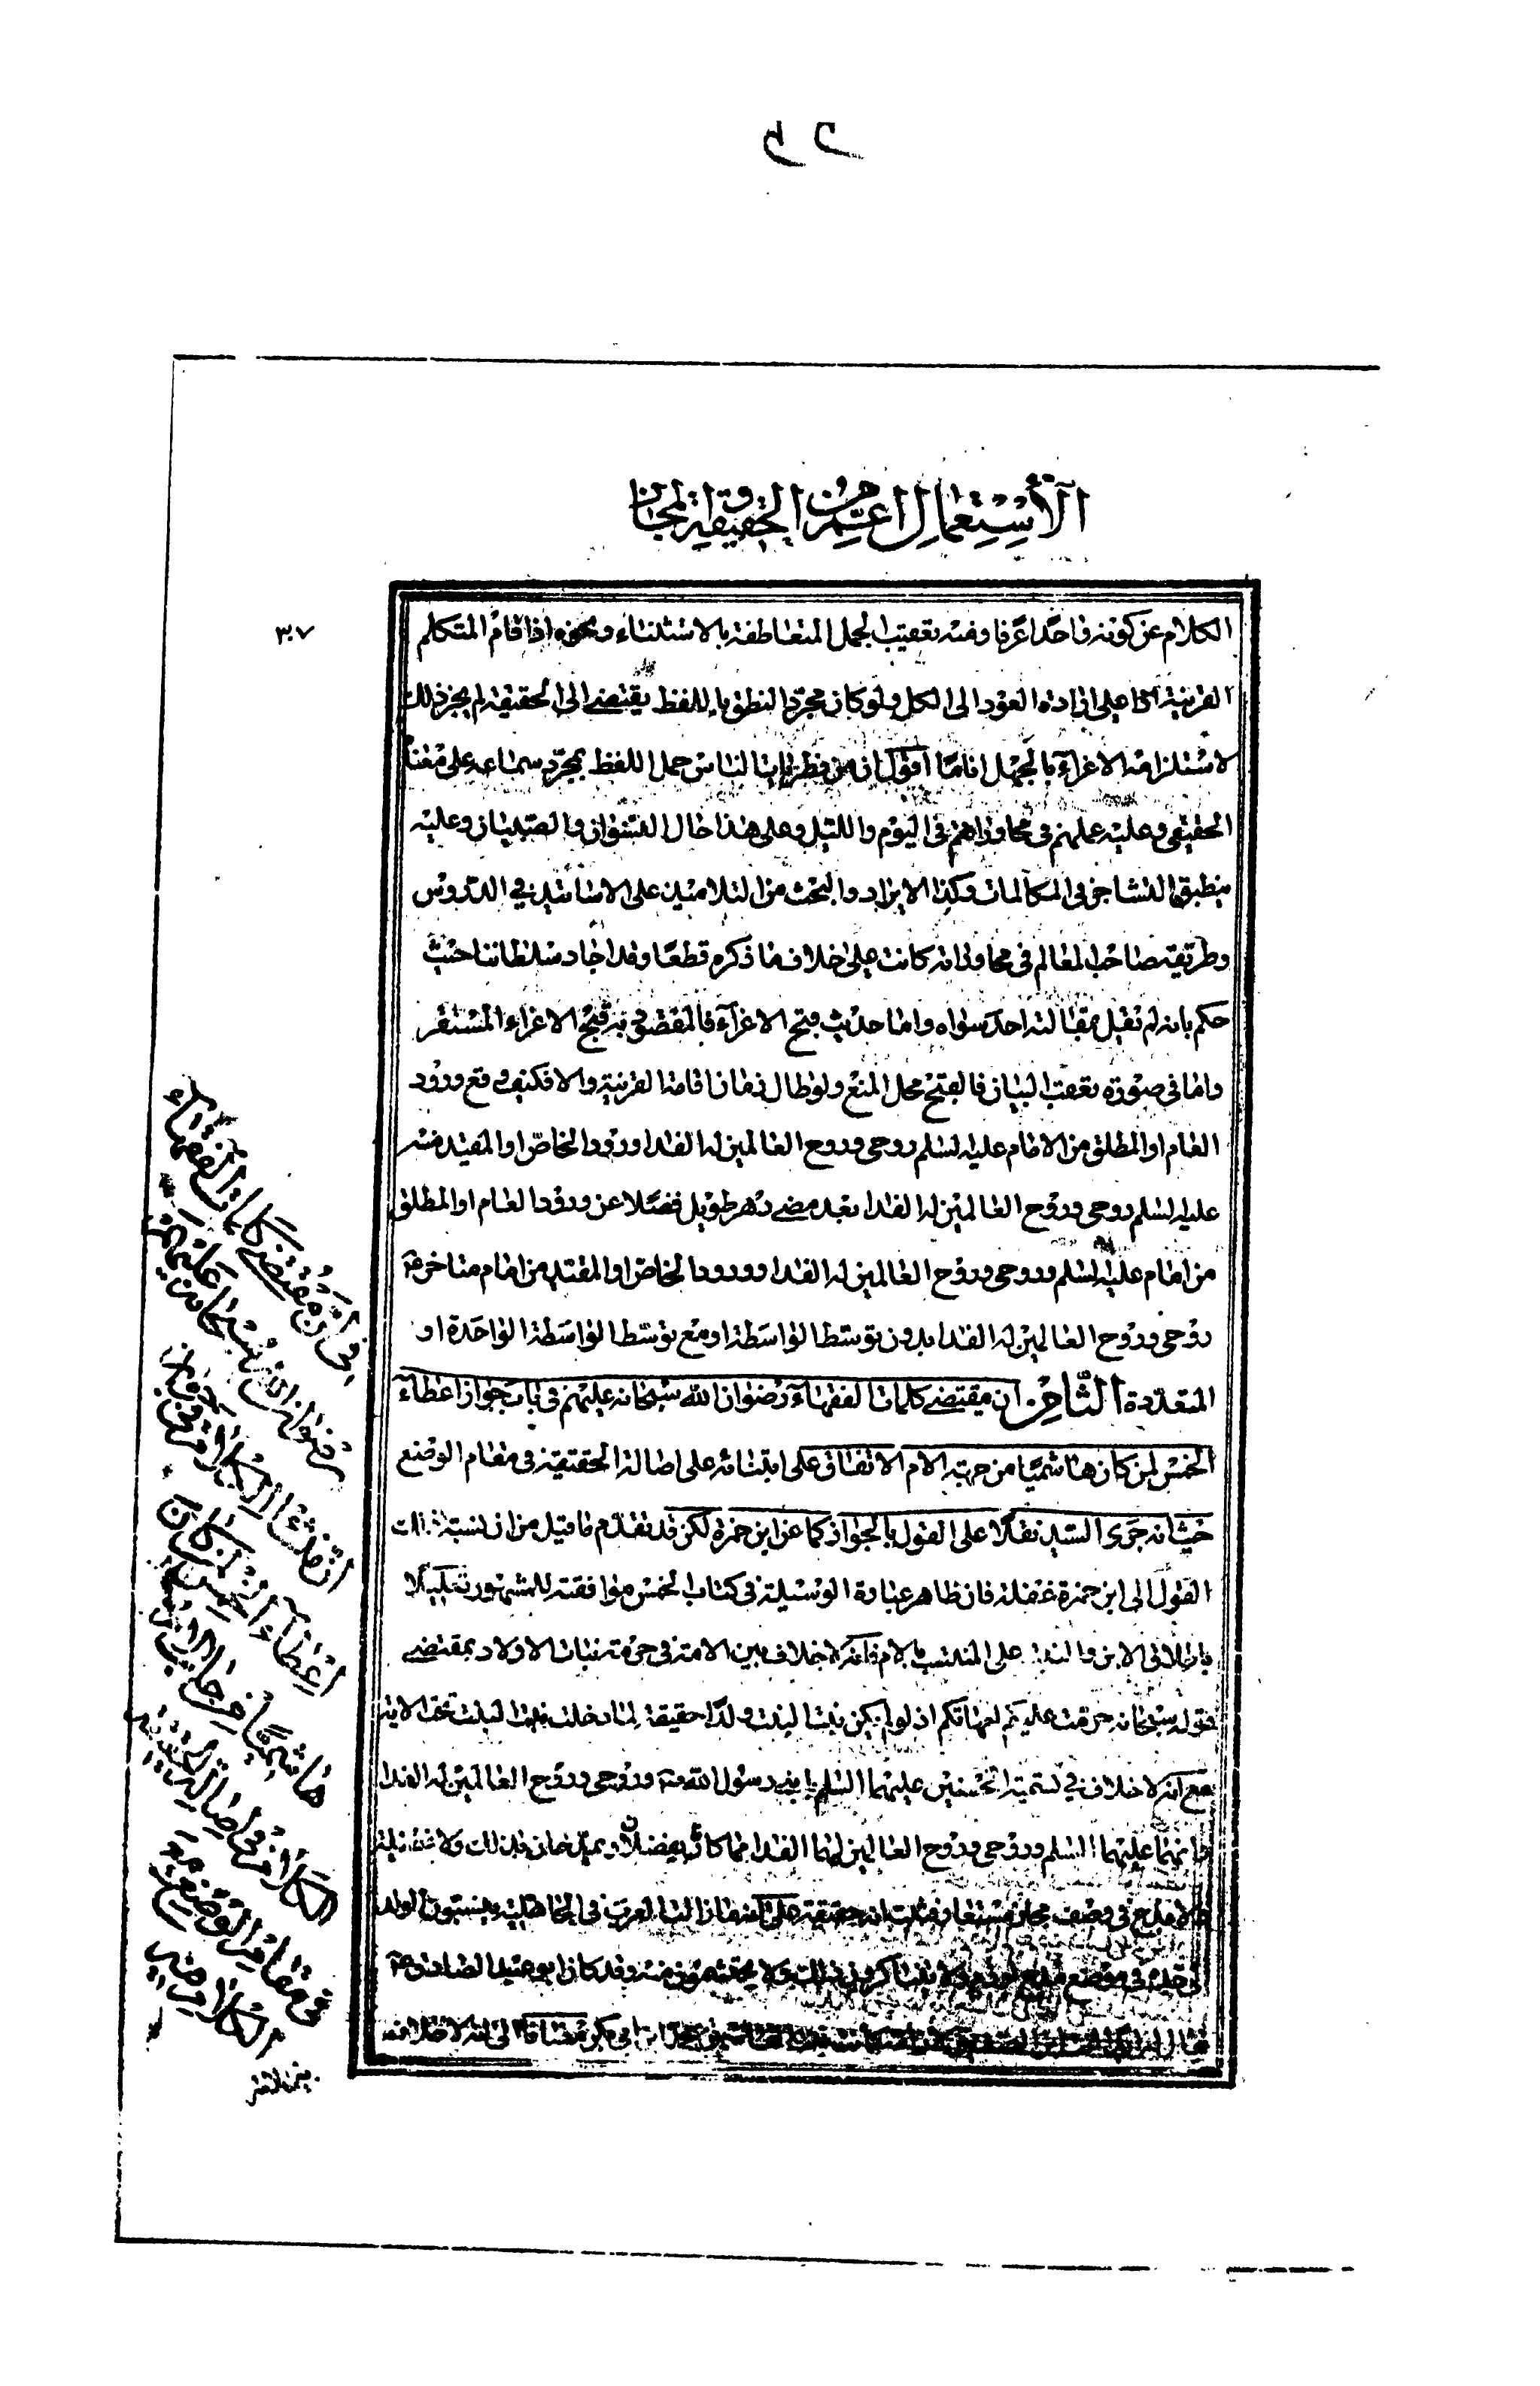 الاستعمال اعم من الحقيقة والمجاز
٣٠٧
الكلام عن كونه واحدا عرفا ومنه تعقيب الجمل المتعاطفة بالاستثناء ونحوه اذا قام المتكلم
القرينة على ارادة العود الى الكل ولو كان مجرد النطق باللفظ يقتضي الى الحقيقة لم يجز ذلك
لاستلزامه الاغراء بالجهل اناما اقول ان من الناس حمل اللفظ بمجرد سماعه على معناه
الحقيقي وعليه عملهم في محاوراتهم في اليوم والليل وعلى هذا حال النسوان والصبيان وعليه
ينطبق التشاجر في المكالمات وكذا الايراد والبحث من التلاميذ على الاساتيد في الدروس
وطريقة صاحب المعالم في محاوراته كانت على خلاف ما ذكره قطعا وقد اجاد سلطاننا حيث
حكم بانه لم يقبل بمقالته احد سواه واما حديث قبح الاغراء فالمقضو به قبح الاغراء المستقر
واما في صورة تعقب البيان فالقبح محل المنع ولو طال زمان اقامة القرينة والا فكيف مع ورود
العام او المطلق من الامام عليه السلم روحي وروح العالمين له الفداء ورود الخاص او المقيد منه
عليه السلم روحي وروح العالمين له الفداء بعد مضي دهر طويل فضلا عن ورود العام او المطلق
من امام عليه السلم وروحي وروح العالمين له الفداء وورود الخاص او المقيد من امام متاخر
روحي وروح العالمين له الفداء بدون توسط الواسطة او مع توسط الواسطة الواحدة او
المتعددة الثامن ان مقتضى كلمات الفقهاء رضوان الله سبحانه عليهم في باب جواز اعطاء
الخمس لمن كان هاشميا من جهة الام الاتفاق على ابتنائه على اصالة الحقيقة في مقام الوضع
حيث انه جرى السيد نقلا على القول بالجواز كما عن ابن حمزة لكن قد تقدم ما قيل من ان نسبة ذلك
القول الى ابن حمزة غفلة فان ظاهر عبارة الوسيلة في كتاب الخمس موافقته للمشهور تعليلا
باطلاق الابن والبنت على المنتسب بالام فانه لا خلاف بين الامة في حرمة بنات الاولاد بمقتضى
قوله سبحانه حرمت عليكم امهاتكم اذ لو لم يكن بنت البنت ولدا حقيقة لما دخلت تحت الاية
مع انه لا خلاف في تسمية الحسنين عليهما السلم بابني رسول الله وروحي وروح العالمين له الفداء
وانهما عليهما السلم وروحي وروح العالمين لهما الفداء مما كانا يفضلان ويمدحان بذلك ولا فضيلة
ولا مدح في وصف مجاز مستعار فثبت انه حقيقة على العرب في الجاهلية ينسبون الولد
الى جده في موضع مدح او ذم ولا يتناكرون ذلك ولا يحتشمون منه وقد كان ابو عبد الله الصادق
في ان مقتضى كلمات الفقهاء
رضوان الله سبحانه عليهم
اعطاء الخمس لمن كان
هاشميا من جانب
الام في اصالة الحقيقة
في مقام الوضع